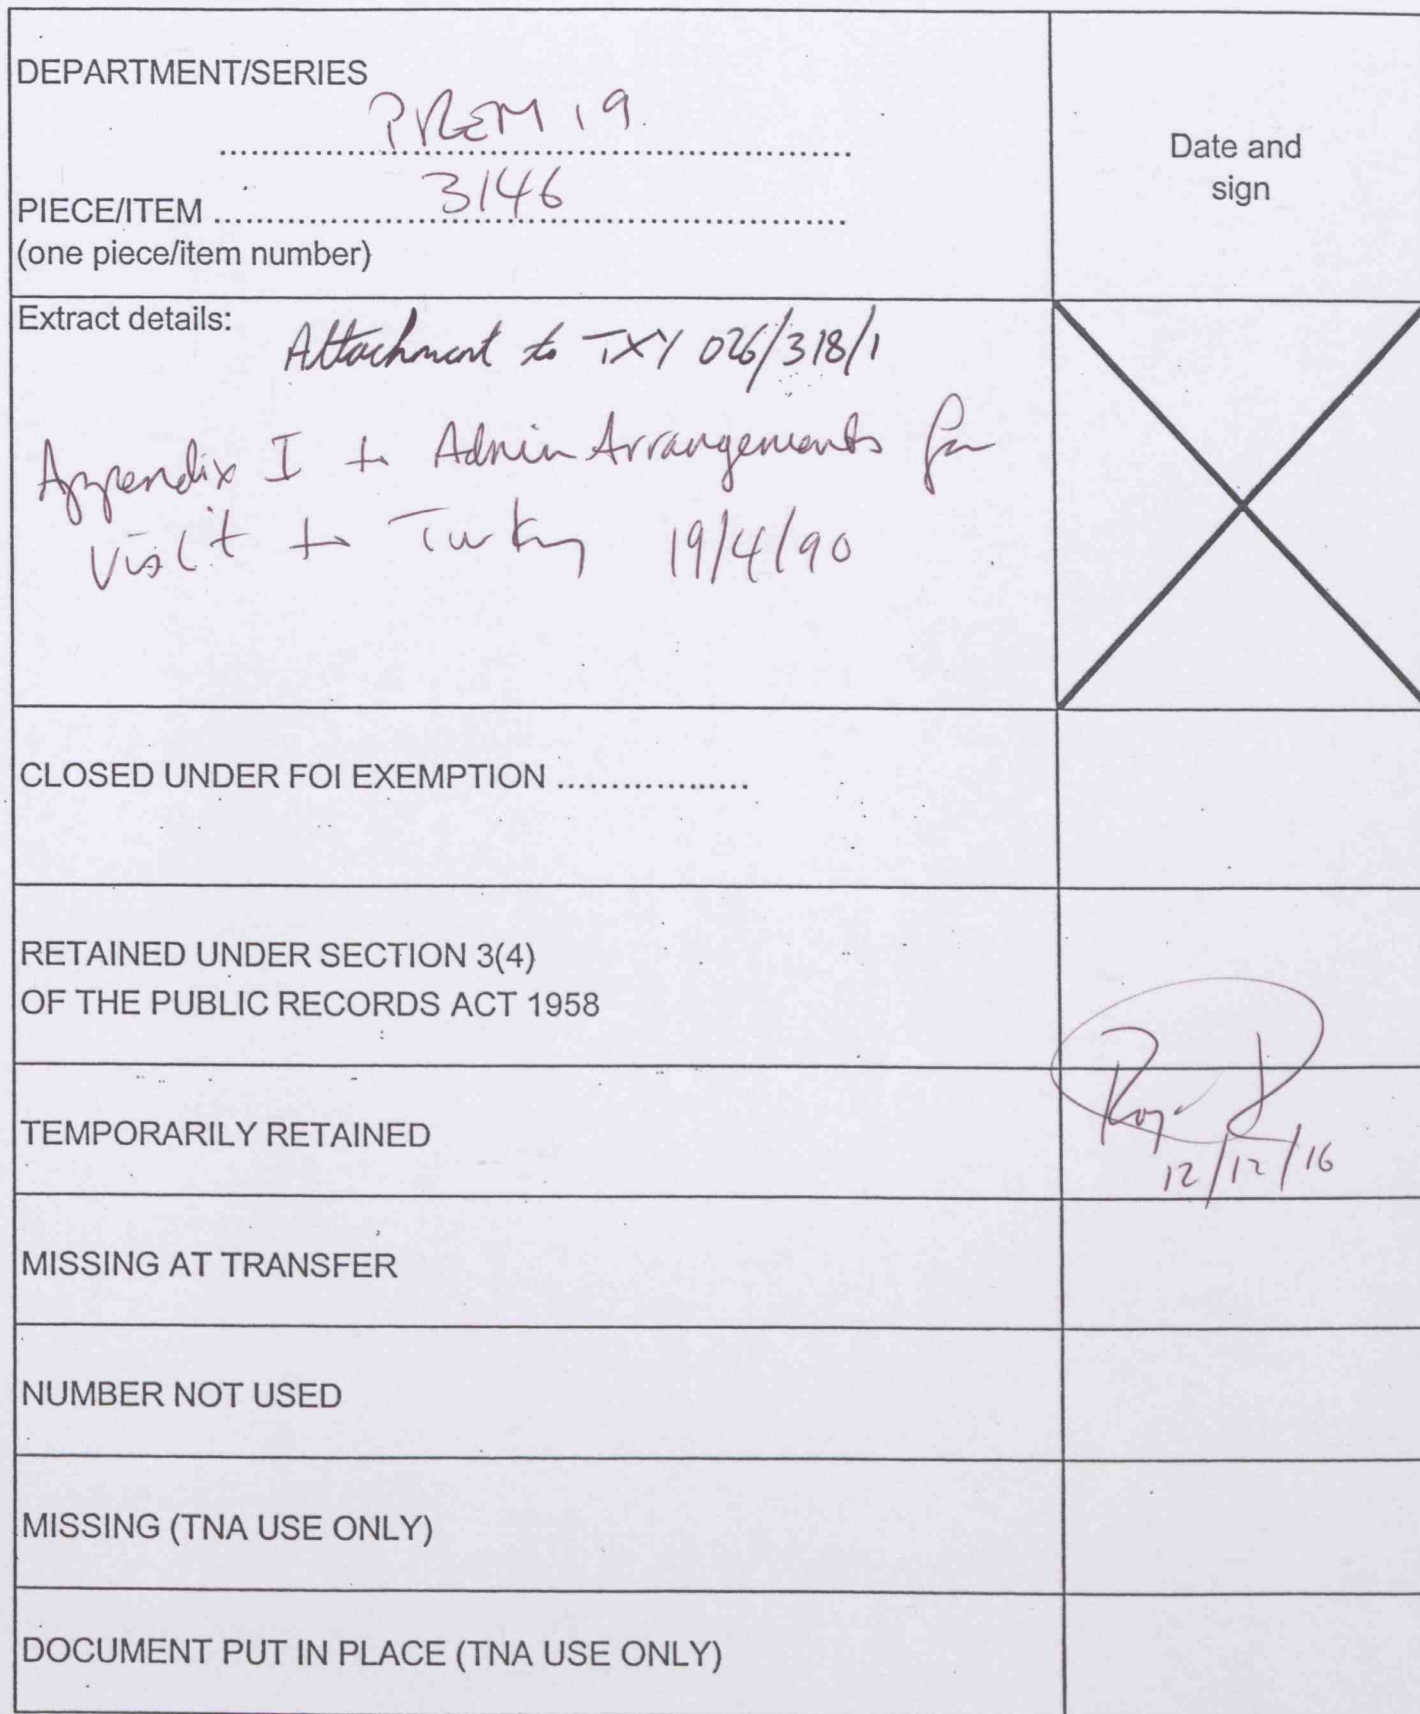 DEPARTMENT/SERIES
PREM 19
PIECE/ITEM 3146
(one piece/item number)
Date and
sign
Extract details:
Attachment to TXY 026/318/1
Appendix I to Admin Arrangements for
Visit to Turkey 19/4/90
CLOSED UNDER FOI EXEMPTION ..................
RETAINED UNDER SECTION 3(4)
OF THE PUBLIC RECORDS ACT 1958
TEMPORARILY RETAINED
12/12/16
MISSING AT TRANSFER
NUMBER NOT USED
MISSING (TNA USE ONLY)
DOCUMENT PUT IN PLACE (TNA USE ONLY)